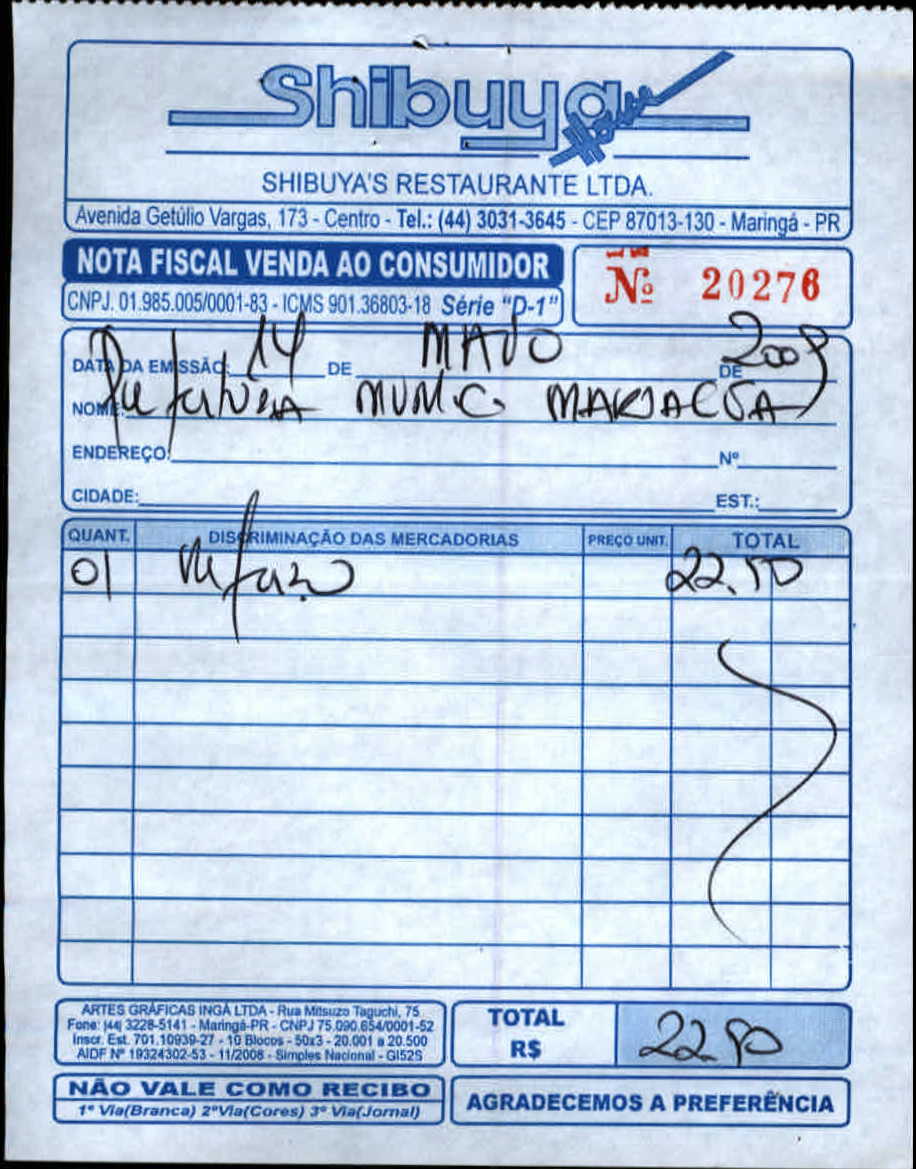 Shibuya
SHIBUYA'S RESTAURANTE LTDA.
Avenida Getúlio Vargas, 173 - Centro - Tel.: (44) 3031-3645 - CEP 87013-130 - Maringá - PR
NOTA FISCAL VENDA AO CONSUMIDOR
Nº 20276
CNPJ. 01.985.005/0001-83 - ICMS 901.36803-18 Série "D-1"
DATA DA EMISSÃO: 14 DE MAIO DE 2009
NOME: MUNIC
ENDEREÇO: Nº
CIDADE: EST.:
QUANT. DISCRIMINAÇÃO DAS MERCADORIAS PREÇO UNIT. TOTAL
01
ARTES GRÁFICAS INGÁ LTDA - Rua Mitsuzo Taguchi, 75
Fone: (44) 3228-5141 - Maringá-PR - CNPJ 75.090.654/0001-52
Inscr. Est. 701.10939-27 - 10 Blocos - 50x3 - 20.001 a 20.500
AIDF Nº 19324302-53 - 11/2008 - Simples Nacional - GI52S
TOTAL
R$
NÃO VALE COMO RECIBO
1ª Via(Branca) 2ªVia(Cores) 3ª Via(Jornal)
AGRADECEMOS A PREFERÊNCIA